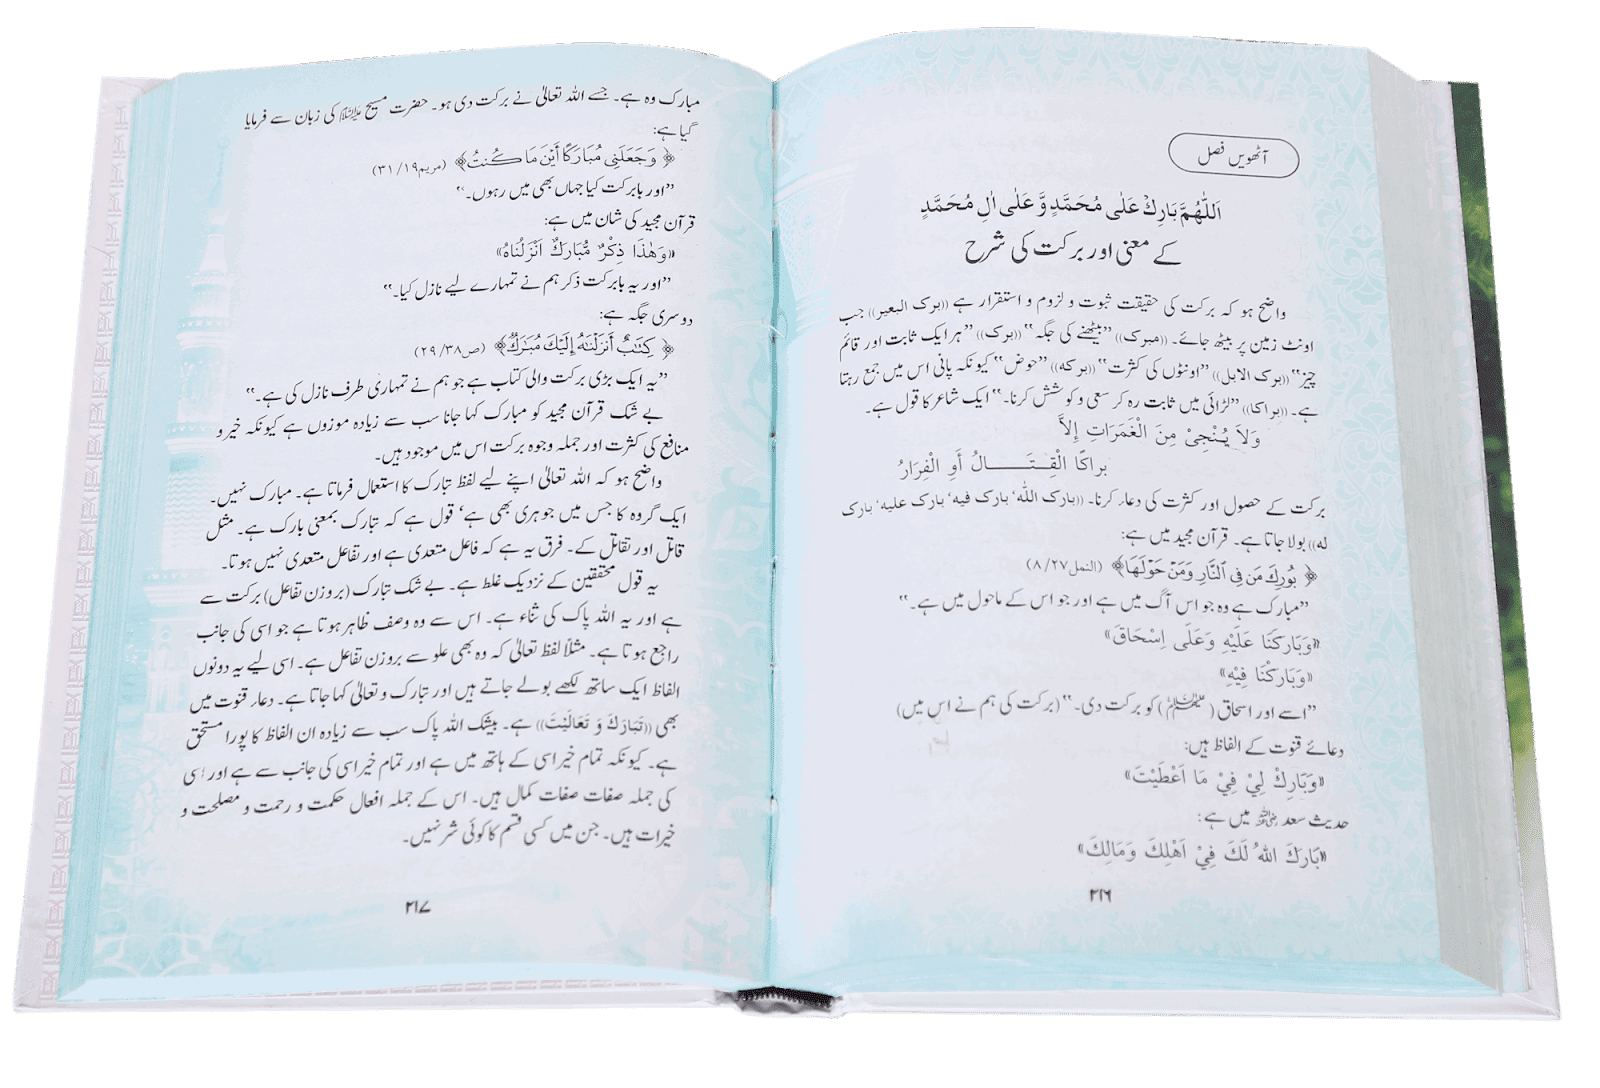 آٹھویں فصل
اَللّٰهُمَّ بَارِكْ عَلٰى مُحَمَّدٍ وَّ عَلٰى اٰلِ مُحَمَّدٍ
کے معنی اور برکت کی شرح
واضح ہو کہ برکت کی حقیقت ثبوت و لزوم و استقرار ہے ((برک البعیر)) جب
اونٹ زمین پر بیٹھ جائے۔ ((مبرک)) ”بیٹھنے کی جگہ“ ((برک)) ”ہر ایک ثابت اور قائم
چیز“ ((برک الابل)) ”اونٹوں کی کثرت“ ((برکہ)) ”حوض“ کیونکہ پانی اس میں جمع رہتا
ہے۔ ((براکا)) ”لڑائی میں ثابت رہ کر سعی و کوشش کرنا۔“ ایک شاعر کا قول ہے۔
وَلاَ يُنْجِىْ مِنَ الْغَمَرَاتِ اِلاَّ
براكَا الْقِتَـــــالُ أَوِ الْفِرَارُ
برکت کے حصول اور کثرت کی دعاء کرنا۔ ((بارک اللّٰہ‘ بارک فیہ‘ بارک علیہ‘ بارک
لہ)) بولا جاتا ہے۔ قرآن مجید میں ہے:
﴿ بُورِكَ مَن فِى ٱلنَّارِ وَمَنْ حَوْلَهَا﴾ (النمل۲۷/ ۸)
”مبارک ہے وہ جو اس آگ میں ہے اور جو اس کے ماحول میں ہے۔“
«وَبَارِكْنَا عَلَيْهِ وَعَلَى اِسْحَاقَ»
«وَبَارَكْنَا فِيْهِ»
”اسے اور اسحاق (علیہما السلام) کو برکت دی۔“ (برکت کی ہم نے اس میں)
دعائے قنوت کے الفاظ ہیں:
«وَبَارِكْ لِيْ فِيْ مَا اَعْطَيْتَ»
حدیث سعد رضی اللہ عنہ میں ہے:
«بَارَكَ اللهُ لَكَ فِيْ اَهْلِكَ وَمَالِكَ»
۲۱۶
مبارک وہ ہے۔ جسے اللہ تعالیٰ نے برکت دی ہو۔ حضرت مسیح علیہ السلام کی زبان سے فرمایا
گیا ہے:
﴿ وَجَعَلَنِى مُبَارَكًا أَيْنَ مَا كُنتُ﴾ (مریم۱۹/ ۳۱)
”اور بابرکت کیا جہاں بھی میں رہوں۔“
قرآن مجید کی شان میں ہے:
«وَهٰذَا ذِكْرٌ مُّبَارَكٌ اَنْزَلْنَاهُ»
”اور یہ بابرکت ذکر ہم نے تمہارے لیے نازل کیا۔“
دوسری جگہ ہے:
﴿ كِتَٰبٌ أَنزَلْنَٰهُ إِلَيْكَ مُبَٰرَكٌ﴾ (ص۳۸/ ۲۹)
”یہ ایک بڑی برکت والی کتاب ہے جو ہم نے تمہاری طرف نازل کی ہے۔“
بے شک قرآن مجید کو مبارک کہا جانا سب سے زیادہ موزوں ہے کیونکہ خیر و
منافع کی کثرت اور جملہ وجوہ برکت اس میں موجود ہیں۔
واضح ہو کہ اللہ تعالیٰ اپنے لیے لفظ تبارک کا استعمال فرماتا ہے۔ مبارک نہیں۔
ایک گروہ کا جس میں جوہری بھی ہے‘ قول ہے کہ تبارک بمعنی بارک ہے۔ مثل
قاتل اور تقاتل کے۔ فرق یہ ہے کہ فاعل متعدی ہے اور تفاعل متعدی نہیں ہوتا۔
یہ قول محققین کے نزدیک غلط ہے۔ بے شک تبارک (بروزن تفاعل) برکت سے
ہے اور یہ اللہ پاک کی ثناء ہے۔ اس سے وہ وصف ظاہر ہوتا ہے جو اسی کی جانب
راجع ہوتا ہے۔ مثلاً لفظ تعالیٰ کہ وہ بھی علو سے بروزن تفاعل ہے۔ اسی لیے یہ دونوں
الفاظ ایک ساتھ لکھے بولے جاتے ہیں اور تبارک و تعالیٰ کہا جاتا ہے۔ دعاء قنوت میں
بھی ((تَبَارَكَ وَ تَعَالَيْتَ)) ہے۔ بیشک اللہ پاک سب سے زیادہ ان الفاظ کا پورا مستحق
ہے۔ کیونکہ تمام خیر اسی کے ہاتھ میں ہے اور تمام خیر اسی کی جانب سے ہے اور اسی
کی جملہ صفات صفات کمال ہیں۔ اس کے جملہ افعال حکمت و رحمت و مصلحت و
خیرات ہیں۔ جن میں کسی قسم کا کوئی شر نہیں۔
۲۱۷